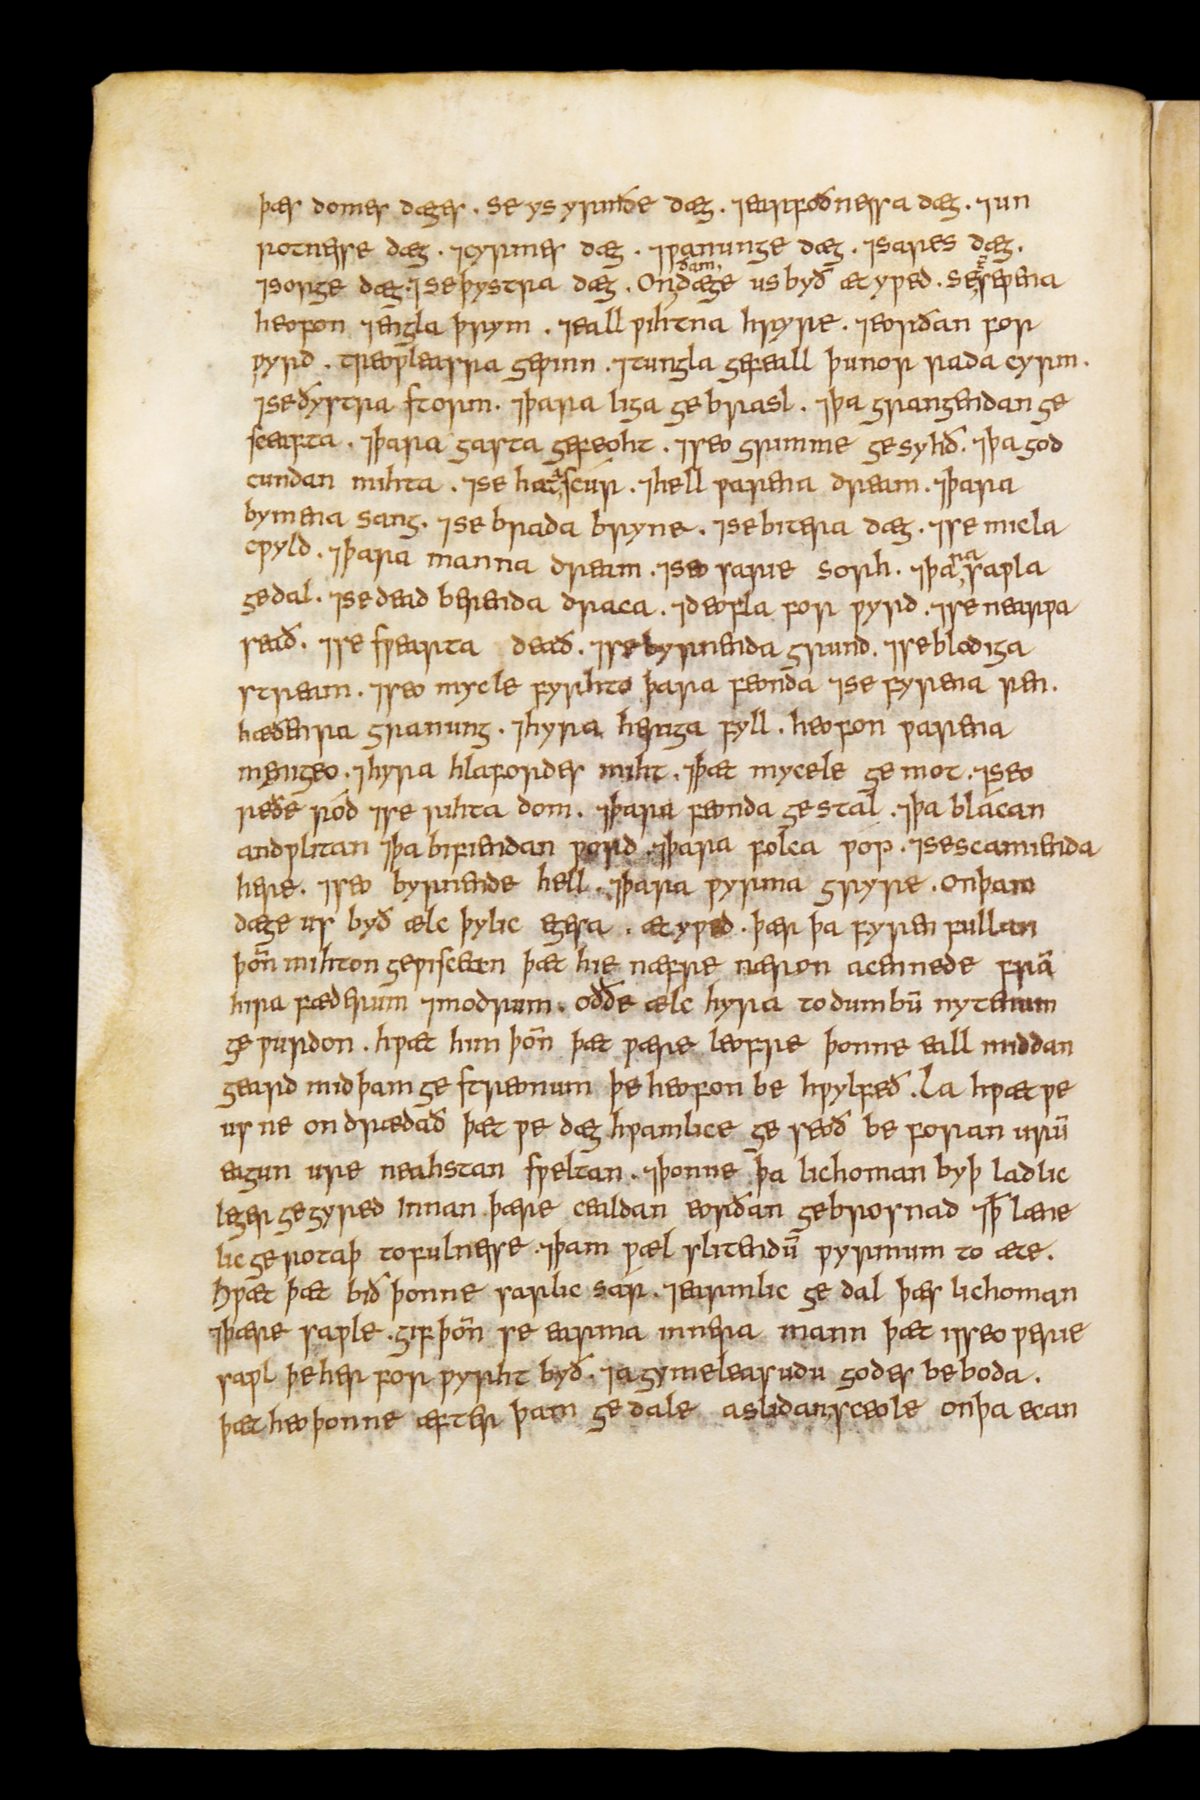 þæs domes dæges . se ys yrmðe dæg . ⁊earfoðnessa dæg . ⁊un
rotnesse dæg . ⁊cyrmes dæg . ⁊ƿanunge dæg . ⁊sares dæg .
⁊sorge dæg . ⁊se þystra dæg . On ðam dæge us byð ætyƿed . se
heofon ⁊engla þrym . ⁊eall ƿihtna hryre . ⁊eorðan for
ƿyrd . treoƿleasra geƿinn . ⁊tungla gefeall þunor rada cyrm .
⁊se ðystra storm . ⁊þara liga gebrasl . ⁊þa grangendan ge
sceafta . ⁊þara gasta gefeoht . ⁊seo grimme gesyhð . ⁊þa god
cundan mihta . ⁊se hata scúr . ⁊hell ƿarena dream . ⁊þara
bymena sang . ⁊se brada bryne . ⁊se bitera dæg . ⁊se micla
cƿyld . ⁊þara manna dream . ⁊seo sarie sorh . ⁊þara saƿla
gedal . ⁊se deað berenda draca . ⁊deofla for ƿyrd . ⁊se nearƿa
seað . ⁊se sƿearta deað . ⁊se byrnenda grund . ⁊se blodiga
stream . ⁊seo mycle fyrhto þara feonda ⁊se fyrena ren .
hæðenra granung . ⁊hyra heriga fyll . heofon ƿarena
mengeo . ⁊hyra hlafordes miht . ⁊þæt mycele gemot . ⁊seo
reðe ród ⁊se rihta dom . ⁊þara feonda gestal . ⁊þa blácan
andƿlitan ⁊þa bifiendan ƿord . ⁊þara folca ƿóp . ⁊se scamienda
here . ⁊seo byrnende hell . ⁊þara ƿyrma gryre . onþam
dæge us byð ælc þylic egesa . ætyƿed . þær þa fyren fullan
þon̄ mihton geƿiscean þæt hie næfre næron acennede frā
hira fæderum ⁊modrum . oððe ælc hyra to dumbū nytenum
geƿurdon . hƿæt him þon̄ þæt ƿære leofre þonne eall middan
geard mid þam gestreonum þe heofon be hƿylfeð . La hƿæt ƿe
us ne ondrædað þæt ƿe dæg hƿamlice geseoð beforan urū
eagun ure neahstan sƿeltan . ⁊þonne þa lichoman byþ ladlic
leger gegyred Innan þære cealdan eorðan gebrosnad ⁊þ̄ læne
lic gerotaþ to fulnesse . ⁊þam ƿæl slitendū ƿyrmum to æte .
Hƿæt þæt bið þonne sarlic sár . ⁊earmlic gedal þæs lichoman
⁊þære saƿle . gif þon̄ se earma innera mann þæt is seo ƿerie
saƿl þe her for ƿyrht byð . ⁊agymeleasudu godes beboda .
þæt heo þonne æfter þam gedale aslidan sceole on þa ecan